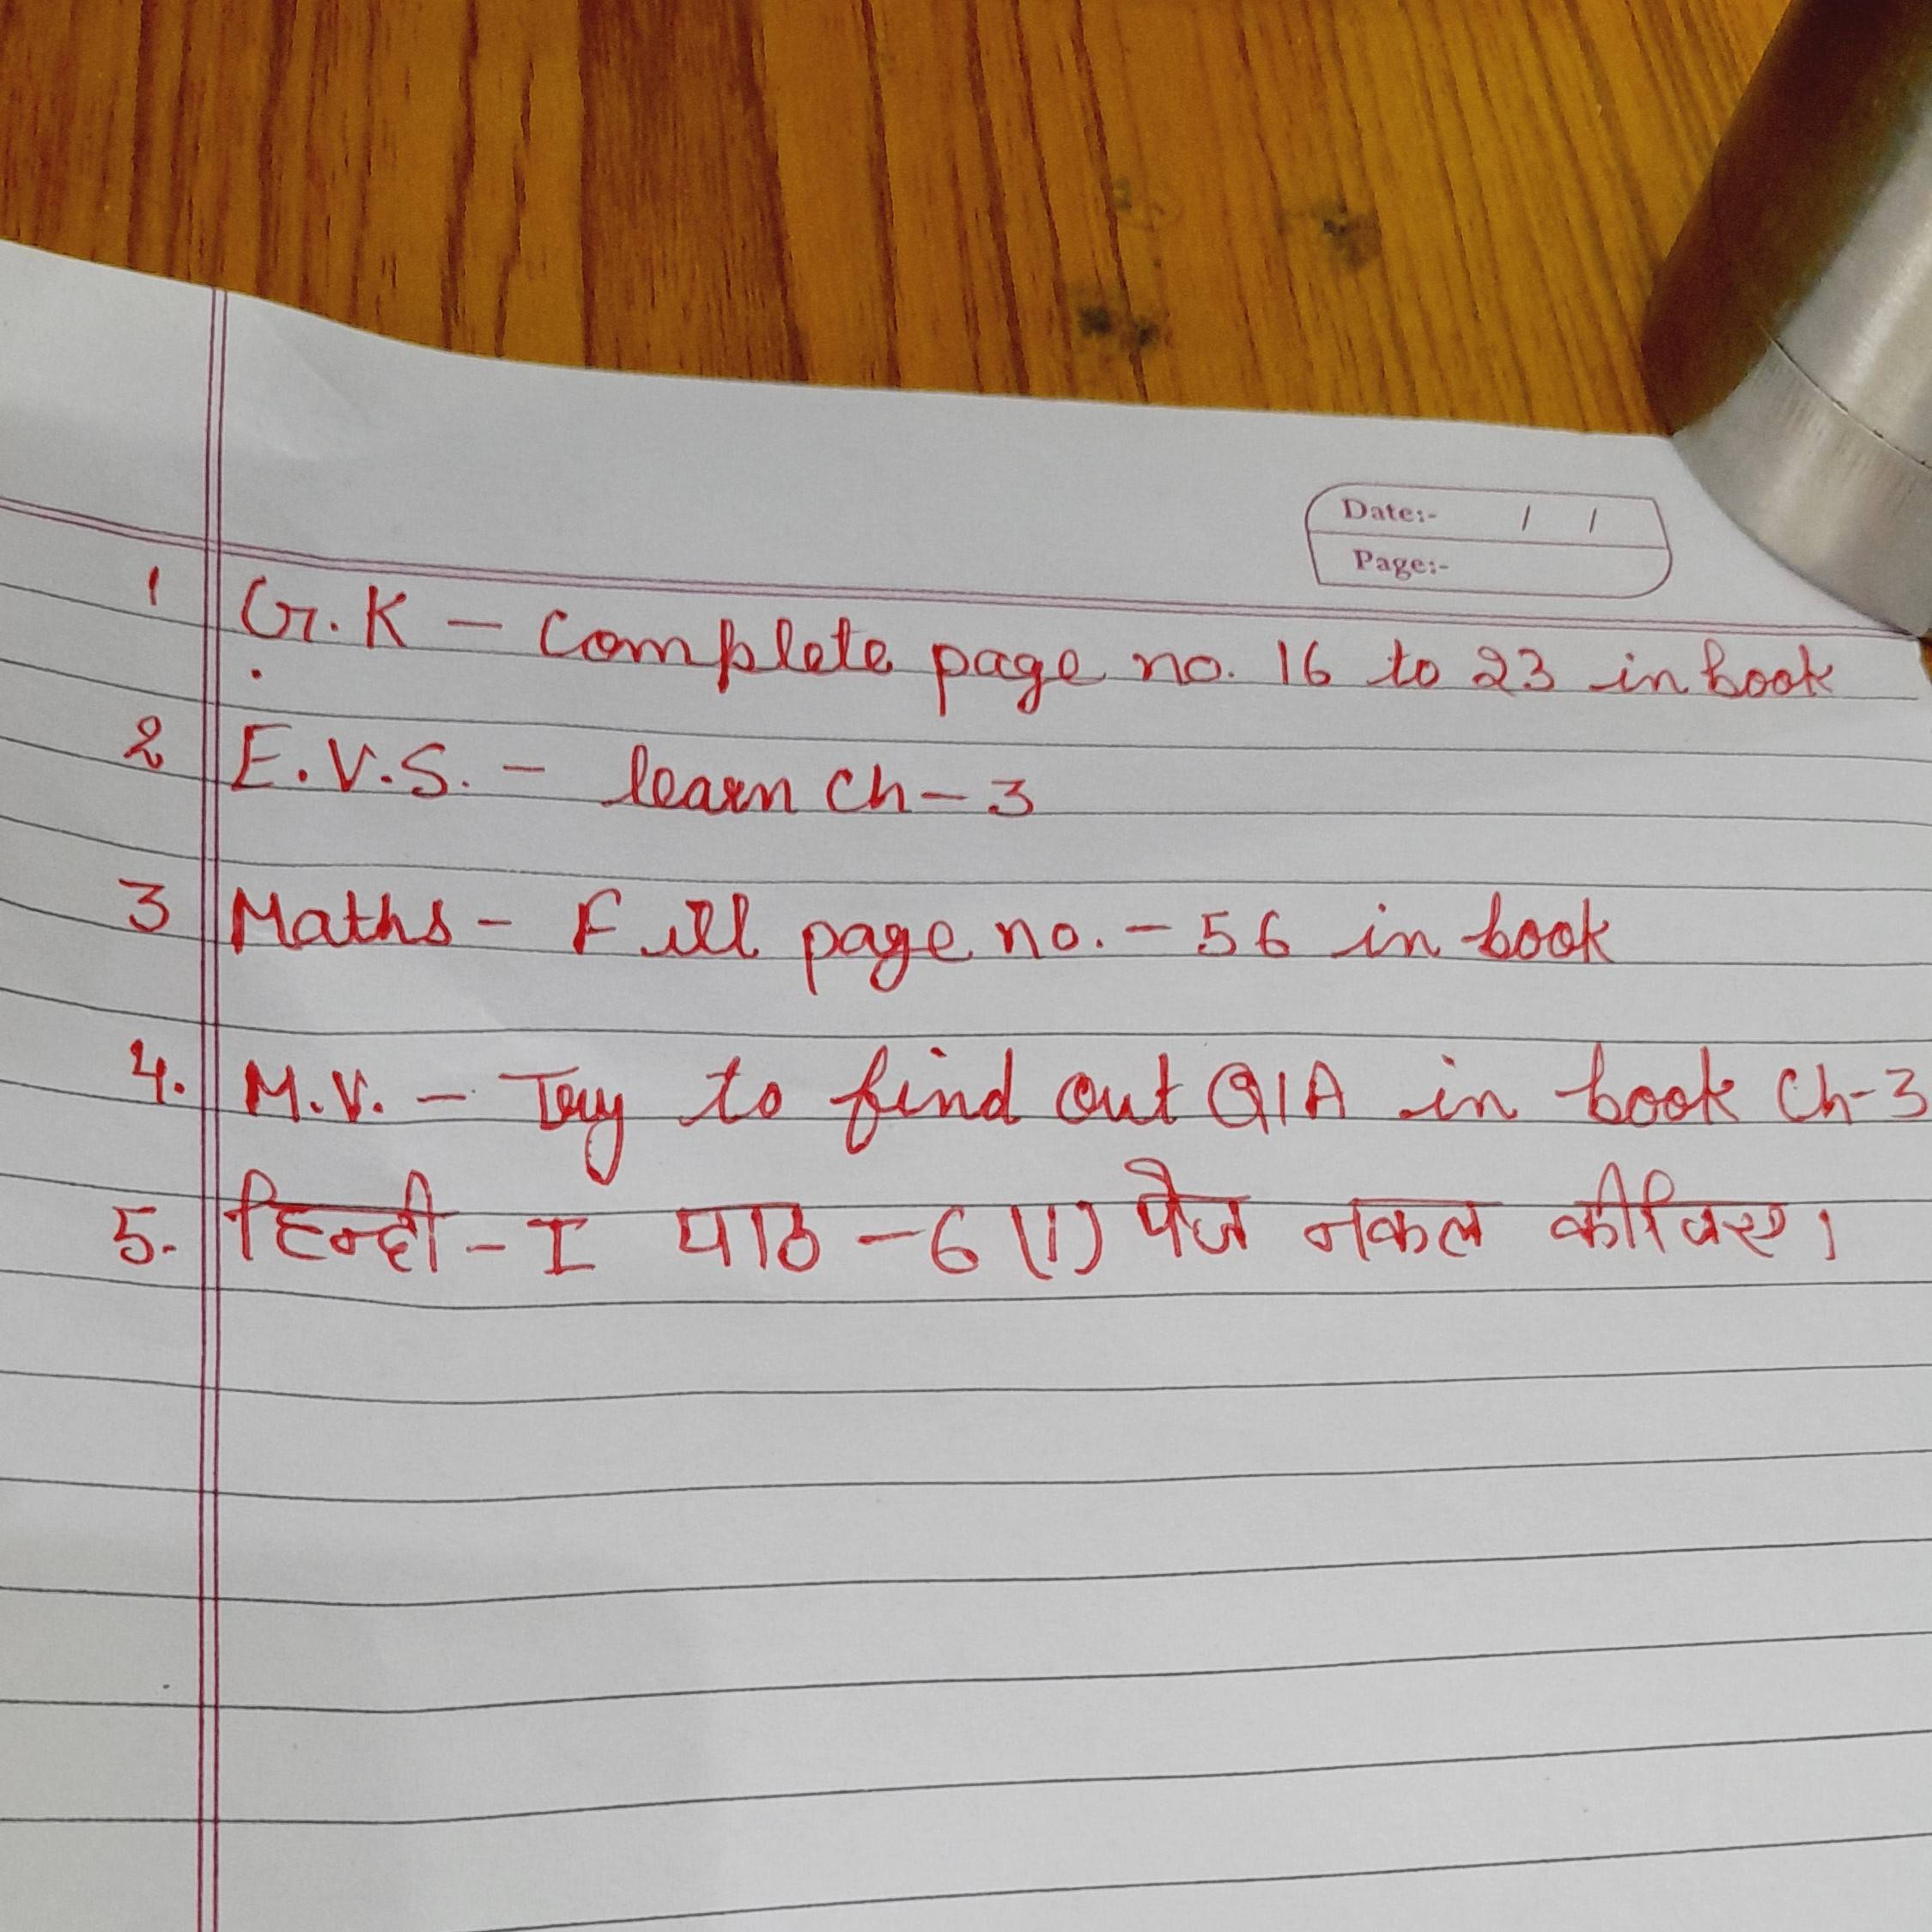 Date:- / /
Page:-
1 G.K – Complete page no. 16 to 23 in book
2 E.V.S. – learn Ch – 3
3 Maths – Fill page no. – 56 in book
4. M.V. – Try to find out Q/A in book Ch-3
5. हिन्दी – I पाठ – 6 (1) पेज नकल कीजिए।